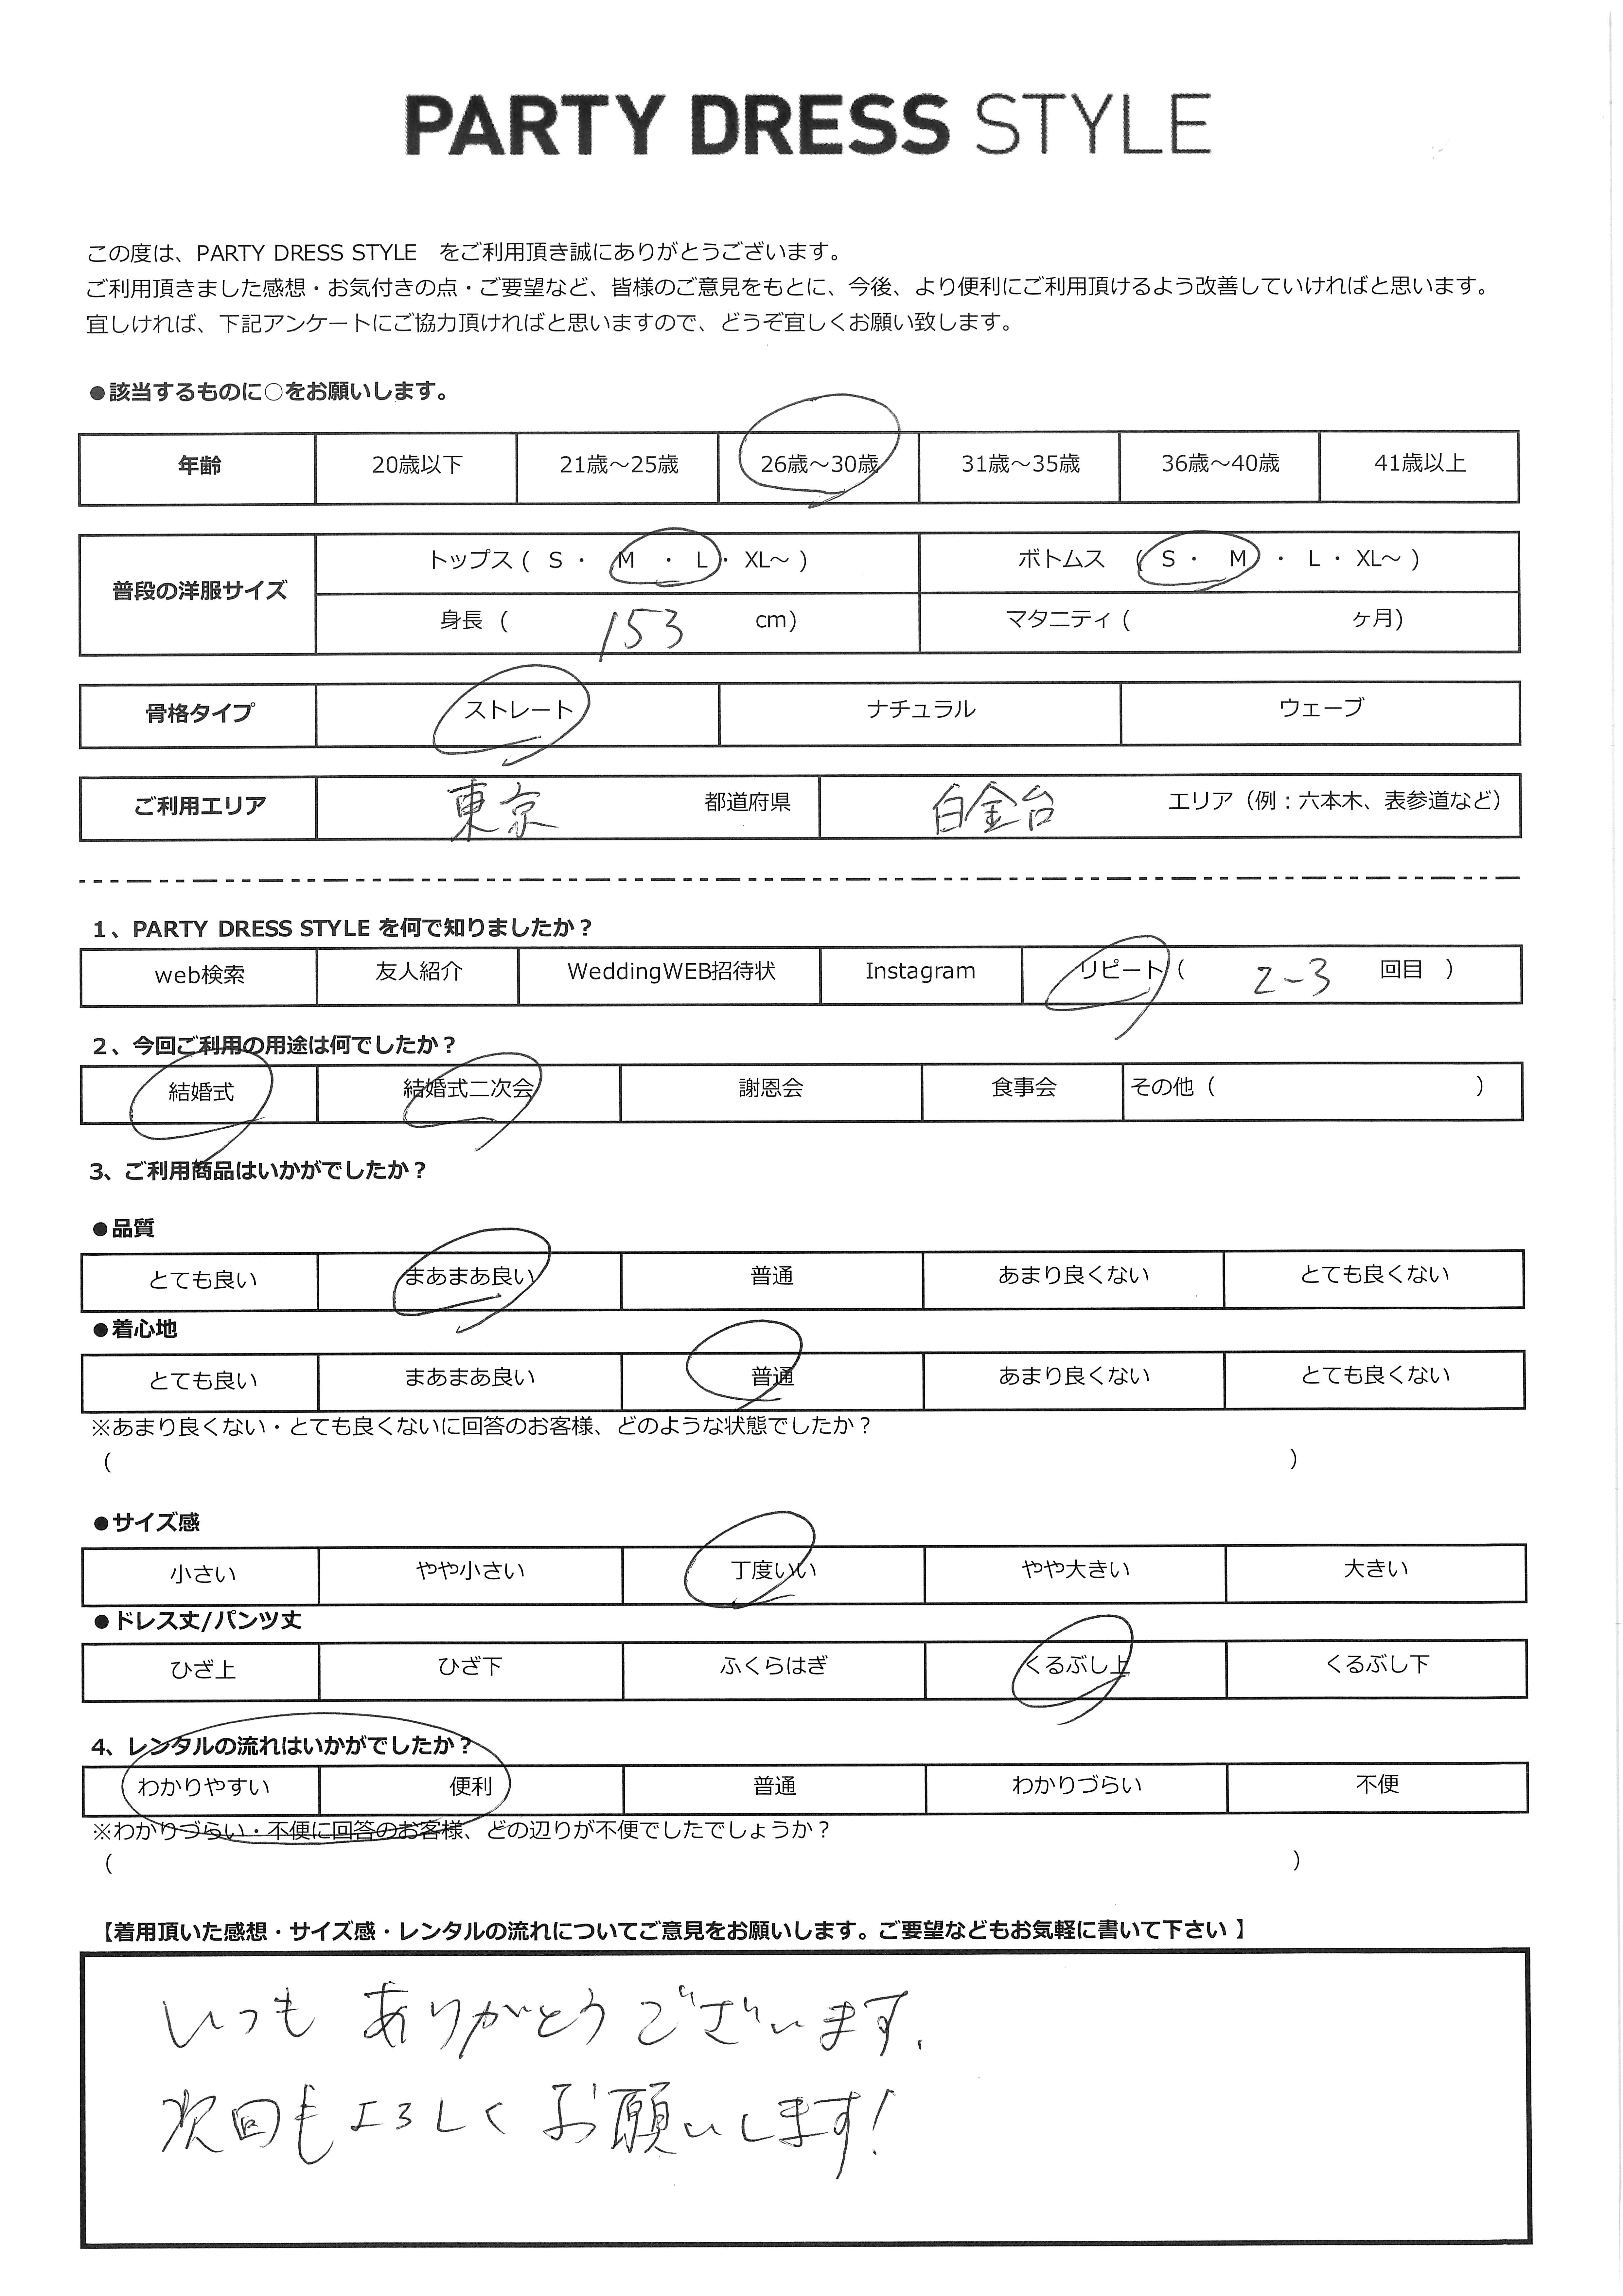 PARTY DRESS STYLE
この度は、PARTY DRESS STYLE　をご利用頂き誠にありがとうございます。
ご利用頂きました感想・お気付きの点・ご要望など、皆様のご意見をもとに、今後、より便利にご利用頂けるよう改善していければと思います。
宜しければ、下記アンケートにご協力頂ければと思いますので、どうぞ宜しくお願い致します。
●該当するものに○をお願いします。
年齢 20歳以下 21歳～25歳 26歳～30歳 31歳～35歳 36歳～40歳 41歳以上
普段の洋服サイズ トップス ( S ・ M ・ L ・ XL～ ) ボトムス ( S ・ M ・ L ・ XL～ )
身長 ( 153 cm) マタニティ ( ヶ月)
骨格タイプ ストレート ナチュラル ウェーブ
ご利用エリア 東京 都道府県 白金台 エリア（例：六本木、表参道など）
1、PARTY DRESS STYLE を何で知りましたか？
web検索 友人紹介 WeddingWEB招待状 Instagram リピート ( 2-3 回目 )
2、今回ご利用の用途は何でしたか？
結婚式 結婚式二次会 謝恩会 食事会 その他 ( )
3、ご利用商品はいかがでしたか？
●品質
とても良い まあまあ良い 普通 あまり良くない とても良くない
●着心地
とても良い まあまあ良い 普通 あまり良くない とても良くない
※あまり良くない・とても良くないに回答のお客様、どのような状態でしたか？
( )
●サイズ感
小さい やや小さい 丁度いい やや大きい 大きい
●ドレス丈/パンツ丈
ひざ上 ひざ下 ふくらはぎ くるぶし上 くるぶし下
4、レンタルの流れはいかがでしたか？
わかりやすい 便利 普通 わかりづらい 不便
※わかりづらい・不便に回答のお客様、どの辺りが不便でしたでしょうか？
( )
【着用頂いた感想・サイズ感・レンタルの流れについてご意見をお願いします。ご要望などもお気軽に書いて下さい 】
いつも ありがとう ございます.
次回も よろしく お願いします!